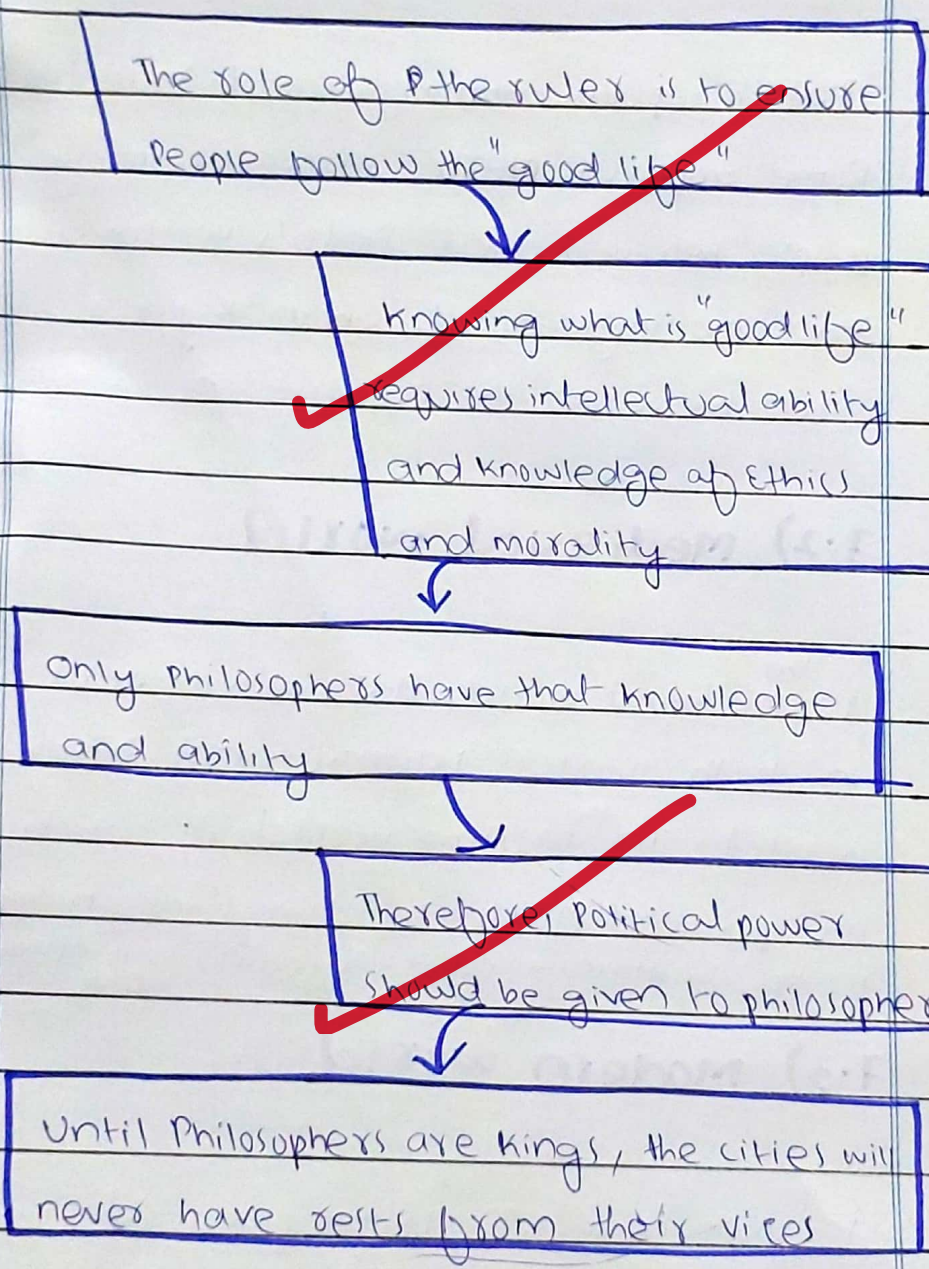 The role of the ruler is to ensure
People follow the "good life"
Knowing what is "good life"
requires intellectual ability
and knowledge of Ethics
and morality
Only Philosophers have that knowledge
and ability
Therefore, Political power
should be given to philosopher
Until Philosophers are Kings, the cities will
never have rests from their vices